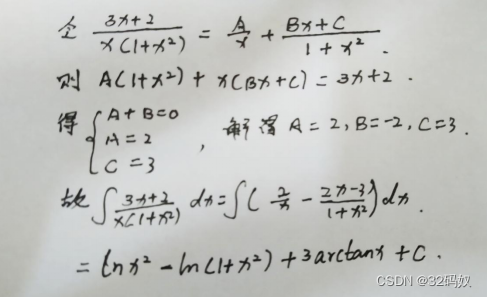 令 (3x+2)/(x(1+x²)) = A/x + (Bx+C)/(1+x²).
则 A(1+x²) + x(Bx+C) = 3x+2.
得 { A+B=0
A=2
C=3 , 解得 A=2, B=-2, C=3.
故 ∫ (3x+2)/(x(1+x²)) dx = ∫ ( 2/x - (2x-3)/(1+x²) ) dx.
= ln x² - ln(1+x²) + 3arctanx + C.
CSDN @32码奴